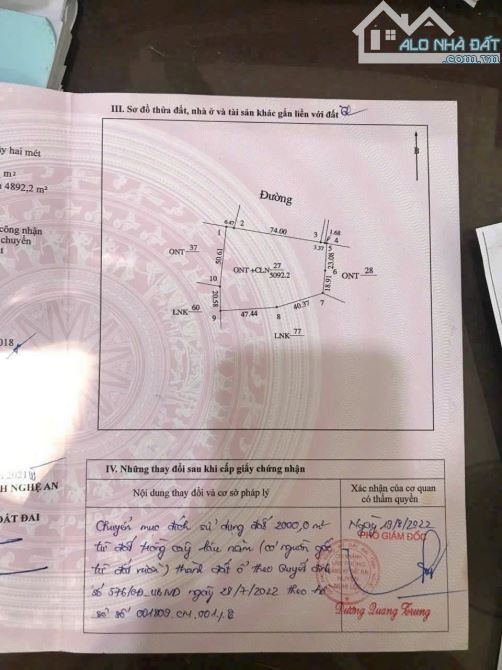 ALO NHÀ ĐẤT
.com.vn
III. Sơ đồ thửa đất, nhà ở và tài sản khác gắn liền với đất
ỳ hai mét
m²
4892,2 m²
công nhận
chuyển
018
2021
H NGHỆ AN
ĐẤT ĐAI
B
Đường
1
6.47
2
74.00
3
3.37
1.68
4
5
23.08
6
18.91
7
40.37
8
47.44
9
20.58
10
50.61
ONT 37
ONT+CLN 27
5092.2
ONT 28
LNK 60
LNK 77
IV. Những thay đổi sau khi cấp giấy chứng nhận
Nội dung thay đổi và cơ sở pháp lý
Xác nhận của cơ quan
có thẩm quyền
Chuyển mục đích sử dụng đất 2000,0 m²
từ đất trồng cây lâu năm (có nguồn gốc
từ đất vườn) thành đất ở theo Quyết định
số 576/QĐ.UBND ngày 28/7/2022 theo hồ
sơ số 001809.CN.001
Ngày 19/8/2022
PHÓ GIÁM ĐỐC
Dương Quang Trung